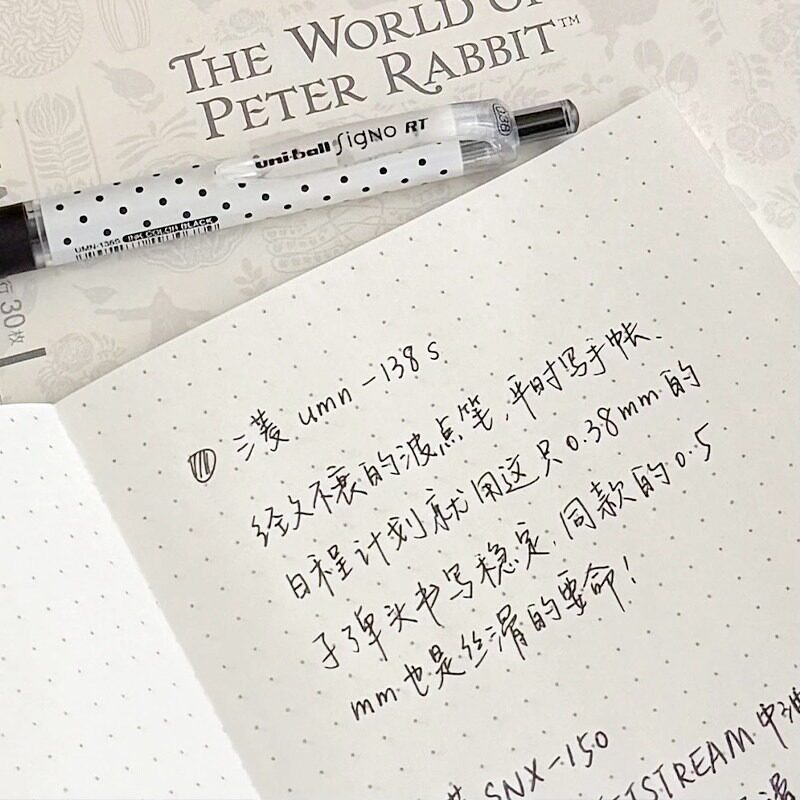 THE WORLD OF
PETER RABBIT™
uni-ball Signo RT
0.38
UMN-138S INK COLOR BLACK
30枚
三菱 umn-138s
经久不衰的波点笔，平时写手帐、
日程计划就用这只0.38mm的
子弹头书写稳定，同款的0.5
mm也是丝滑的要命！
SNX-150
STREAM 中油
滑